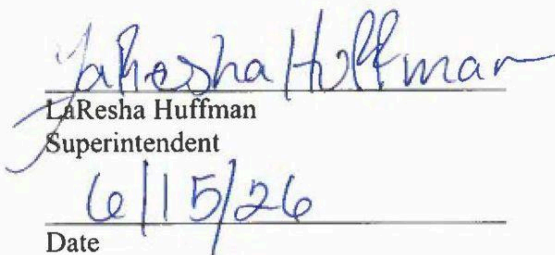 LaResha Huffman
LaResha Huffman
Superintendent
6/15/26
Date